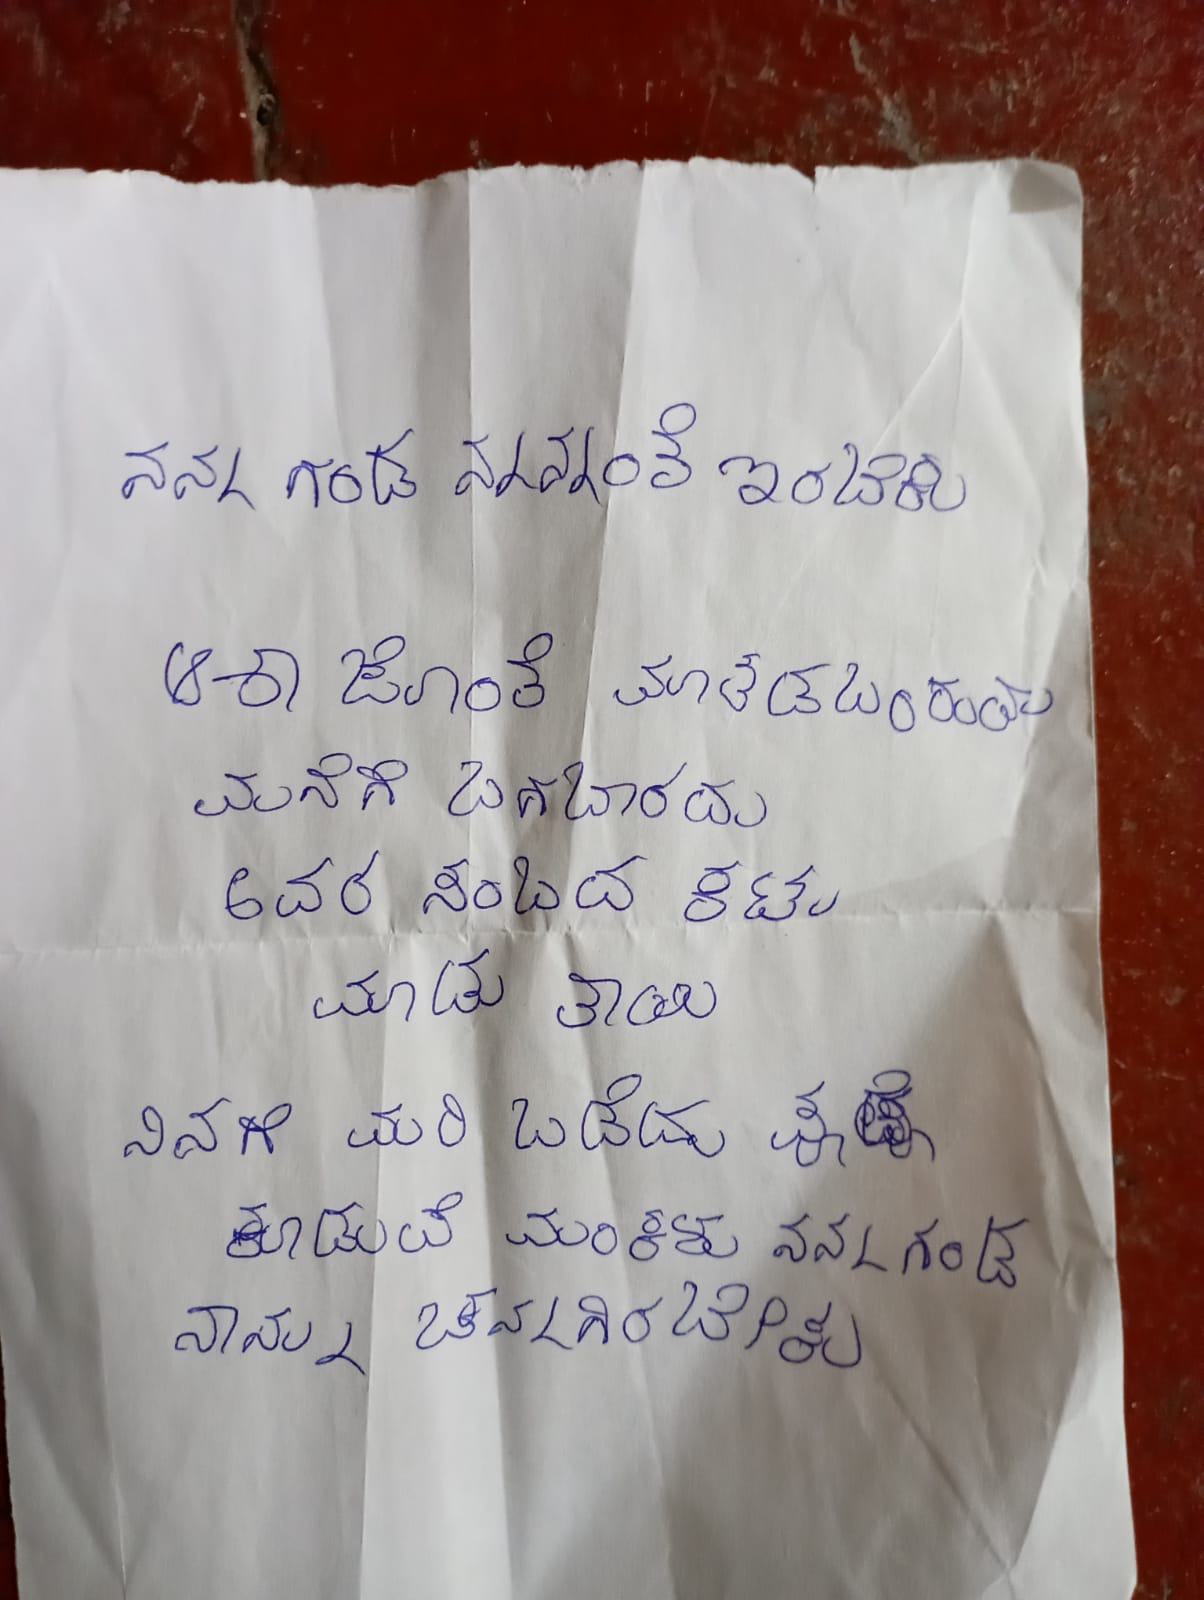 ನನ್ನ ಗಂಡ ನನ್ನಂತೆ ಇರಬೆಕು
ಆಶಾ ಜೊಂತೆ ಮಾತಡಬಂರುದು
ಮನೆಗೆ ಬಗಬಾರದು
ಅವರ ಸಂಬದ ಕಟು
ಮಾಡು ತಾಯಿ
ನಿನಗೆ ಮರಿ ಒಡೆದು
ಕೂಡುವೆ ಮಂಕಕು ನನ್ನ ಗಂಡ
ನಾನ್ನು ಚನ್ನಗಿರಬೇಕು